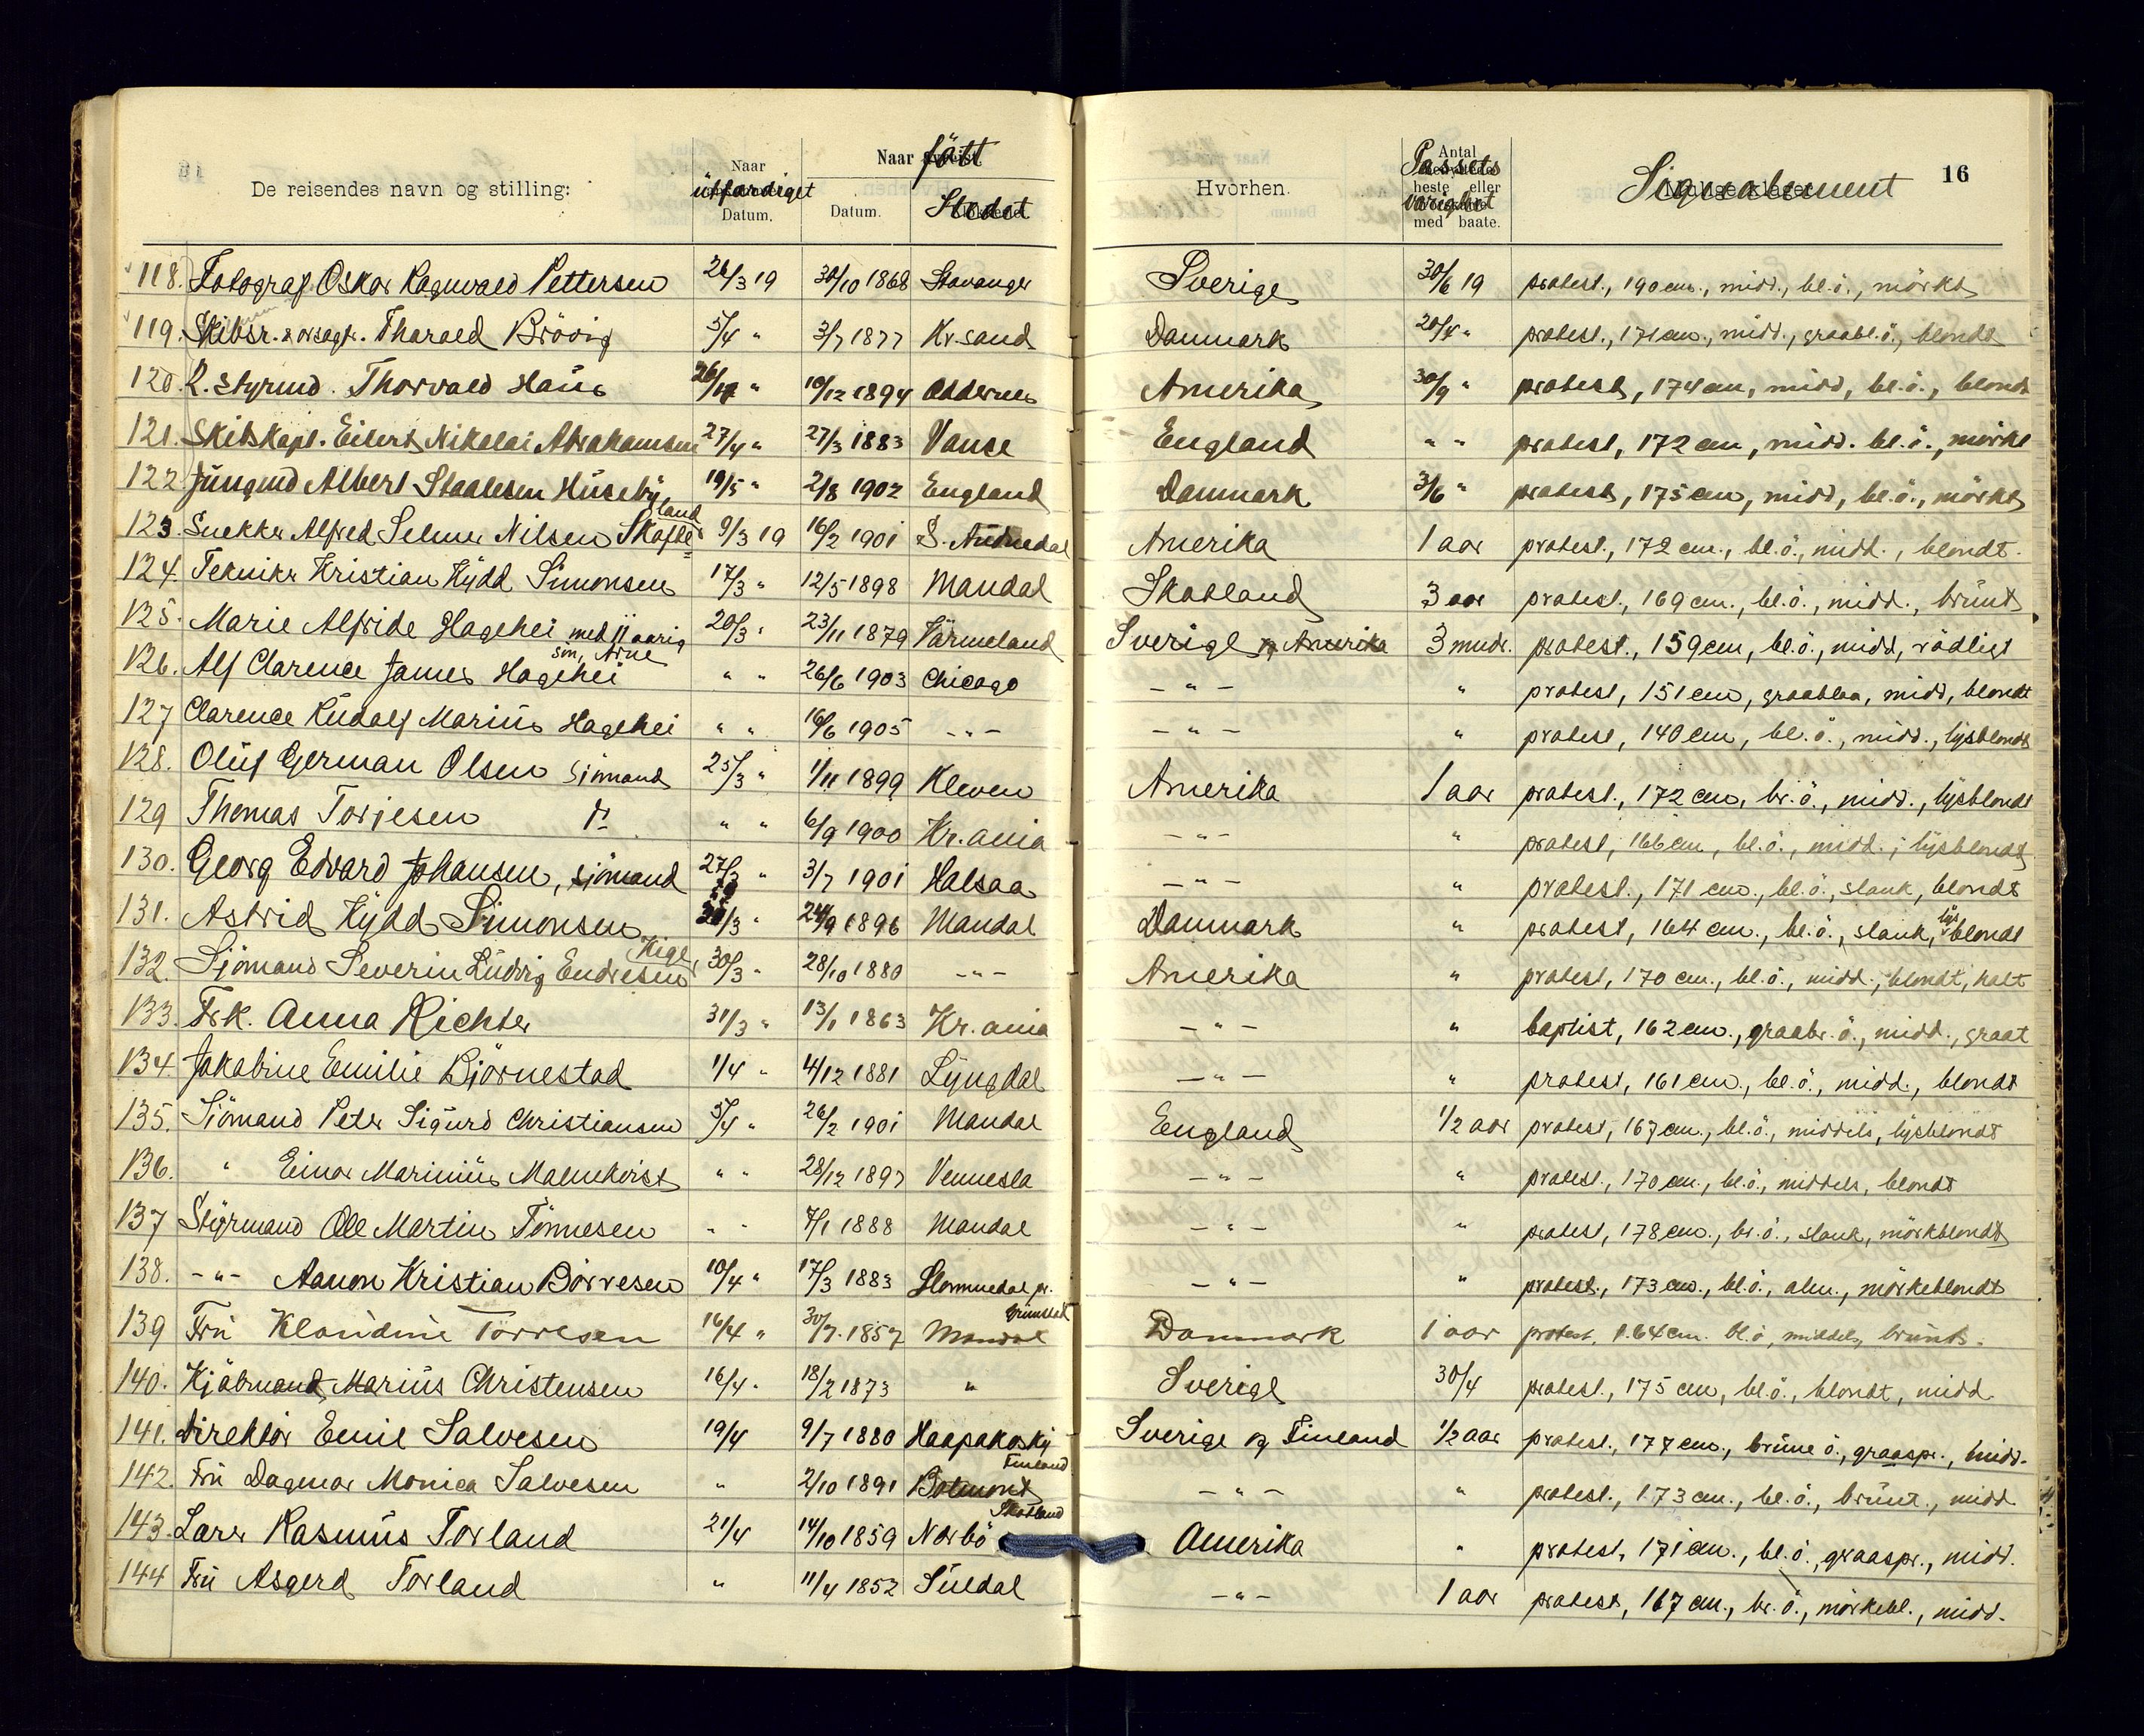 De reisendes navn og stilling: Naar utfærdiget Datum. Naar født Datum. Stedet Hvorhen. Antal Passets heste eller varighet med baate. Signalement 16
118. Fotograf Oskar Ragnvald Pettersen 26/3 19 30/10 1868 Stavanger Sverige 30/6 19 protest., 190 cm., midd., bl.ö., mörkt
119. Skibsr. & orsagf. Tharald Brövig 5/4 " 3/7 1877 Kr.sand Danmark 20/4 " protest., 171 cm., midd., graabl.ö., blondt
120. 2. styrmd. Thorvald Haus 26/4 " 10/12 1894 Oddernes Amerika 30/9 " protest, 174 cm, midd, bl.ö., blondt
121. Skibskapt. Eilert Nikolai Abrahamsen 27/4 " 27/3 1883 Vanse England " " protest, 172 cm, midd. bl.ö., mörkt
122 Jungmd Albert Staalesen Huseby 19/5 " 2/8 1902 England Danmark 3/6 " protest, 175 cm, midd, bl.ö., mörkt
123. Snekker Alfred Selmer Nilsen Skofteland 9/3 19 16/2 1901 S. Audnedal Amerika 1 aar protest., 172 cm., bl.ö., midd., blondt.
124. Tekniker Kristian Kydd Simonsen 17/3 " 12/5 1898 Mandal Skotland 3 aar protest., 169 cm., bl.ö., midd., brunt
125. Marie Alfride Hagehei med 11 aarig sön, Arne 20/3 " 23/11 1879 Värmeland Sverige og Amerika 3 mndr. protest., 159 cm, bl.ö., midd, rödligt
126. Alf Clarence James Hagehei " " 26/6 1903 Chicago - " - " protest, 151 cm, graablaa, midd, blondt
127 Clarence Rudolf Marius Hagehei " " 16/6 1905 - " - - " - " protest, 140 cm, bl.ö., midd., lysblondt
128. Oluf German Olsen sjömand 25/3 " 1/11 1899 Kleven Amerika 1 aar protest., 172 cm, br.ö., midd., lysblondt
129 Thomas Torjesen do. " " 6/9 1900 Kr.ania - " - " protest, 166 cm, bl.ö., midd., lysblondt
130. Georg Edvard Johansen, sjömand 27/3 " 3/7 1901 Halsaa - " - " protest., 171 cm., bl.ö., slank, blondt
131. Astrid Kydd Simonsen 28/3 " 24/9 1896 Mandal Danmark " protest, 164 cm., bl.ö., slank, lysblondt
132 Sjömand Severin Ludvig Endresen Kige 30/3 " 28/10 1880 - " - Amerika " protest, 170 cm., bl.ö., midd., blondt, halt
133. Frk. Anna Richter 31/3 " 13/1 1863 Kr.ania - " - " baptist, 162 cm., graabr.ö., midd., graat
134 Jakobine Emilie Björnestad 1/4 " 4/12 1881 Lyngdal - " - " protest, 161 cm., bl.ö., midd., blondt
135. Sjömand Peter Sigurd Christiansen 5/4 " 26/2 1901 Mandal England 1/2 aar protest, 167 cm., bl.ö., middels, lysblondt
136. " Einar Marinius Malmkvist " " 28/12 1897 Vennesla - " - " protest., 170 cm., bl.ö., middels, blondt
137 Styrmand Ole Martin Tönnesen " " 7/1 1888 Mandal - " - " protest, 178 cm., br.ö., slank, mörkblondt
138. - " - Aanon Kristian Börresen 10/4 " 17/3 1883 Stormnedal pr. Grimstad - " - " protest., 173 cm., bl.ö., alm., mörkeblondt
139 Fru Klaudine Torresen 16/4 " 30/7 1857 Mandal Danmark 1 aar protest, 164 cm. bl.ö, middels, brunt.
140. Kjöbmand Marius Christensen 16/4 " 18/2 1873 " Sverige 30/4 protest., 175 cm, bl.ö., blondt, midd.
141. Direktör Emil Salvesen 19/4 9/7 1880 Haapakoski Finland Sverige og Finland 1/2 aar protest., 177 cm., brune ö., graaspr., midd.
142. Fru Dagmar Monica Salvesen " 2/10 1891 Botmont Skotland - " - " protest., 173 cm., bl.ö., brunt., midd.
143. Lærer Rasmus Torland 21/4 14/10 1859 Nærbö Amerika " protest, 171 cm., bl.ö., graaspr., midd.
144 Fru Asgerd Torland " 11/4 1852 Suldal - " - 1 aar protest, 167 cm., br.ö., mörkebl., midd.